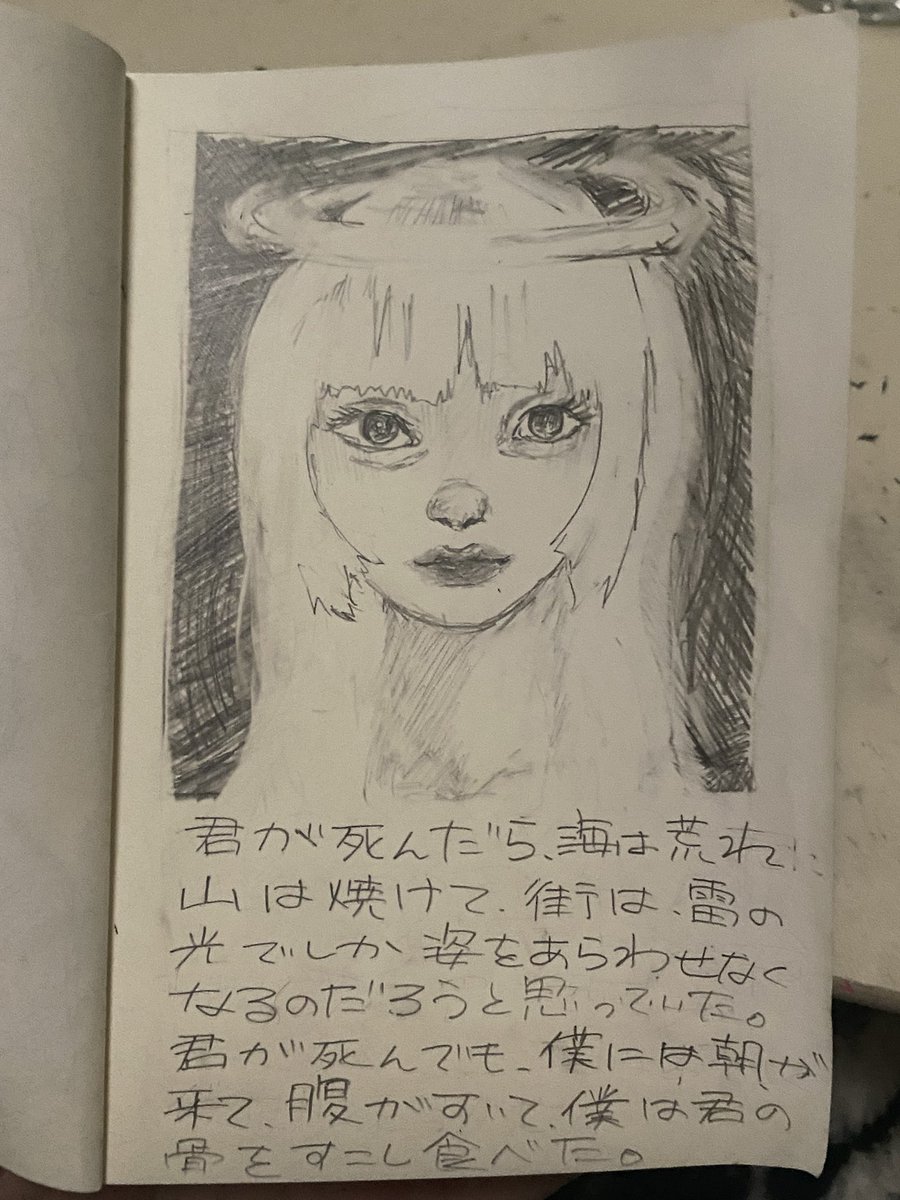 君が死んだら、海は荒れて
山は焼けて、街は、雷の
光でしか姿をあらわせなく
なるのだろうと思っていた。
君が死んでも、僕には朝が
来て、腹がすいて、僕は君の
骨をすこし食べた。